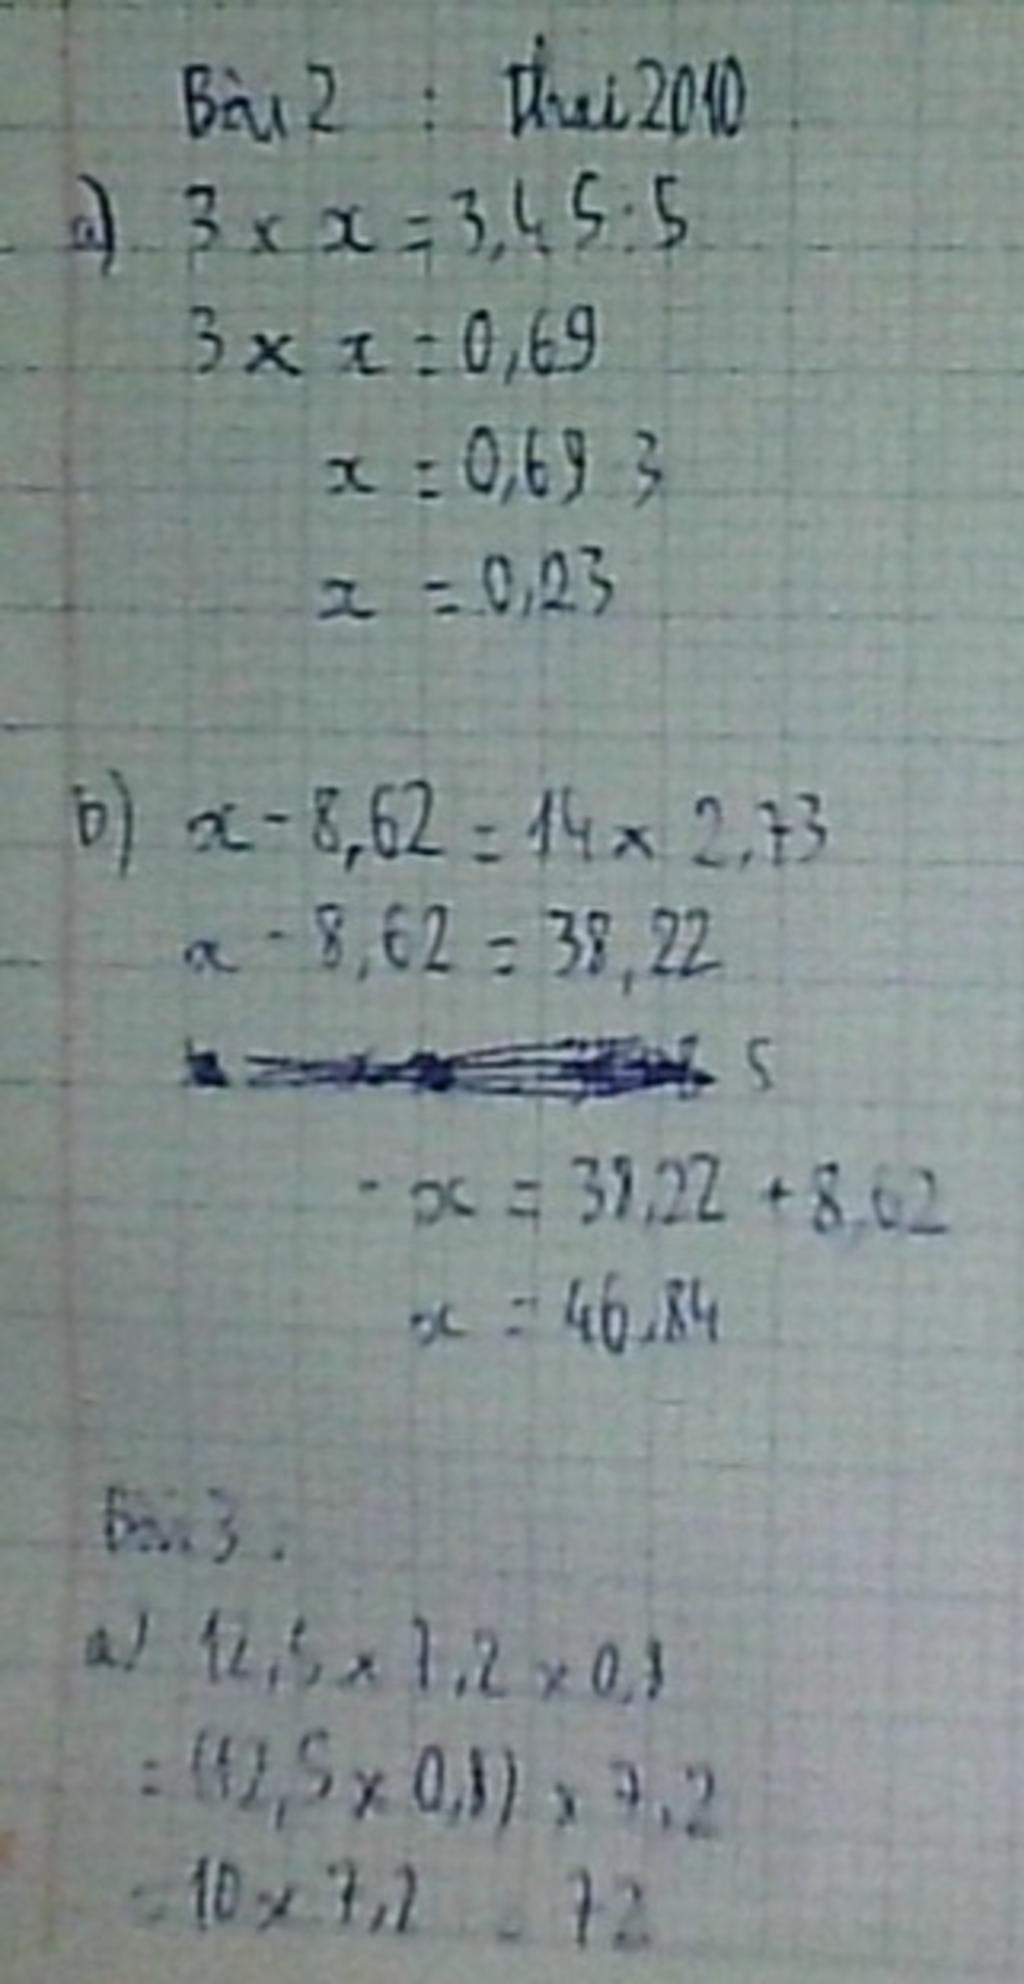 Bài 2 :
a) 3 x x = 3,45 : 5
3 x x = 0,69
x = 0,69 3
x = 0,23
b) x - 8,62 = 14 x 2,73
x - 8,62 = 38,22
5
x = 38,22 + 8,62
x = 46,84
Bài 3 :
a) 12,5 x 7,2 x 0,8
= (12,5 x 0,8) x 7,2
= 10 x 7,2 = 72